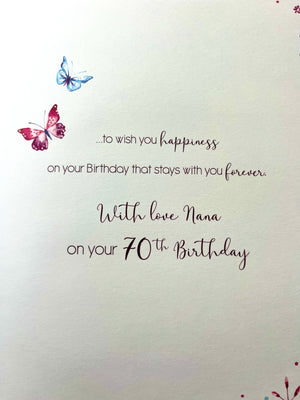 ...to wish you happiness
on your Birthday that stays with you forever.
With love Nana
on your 70th Birthday